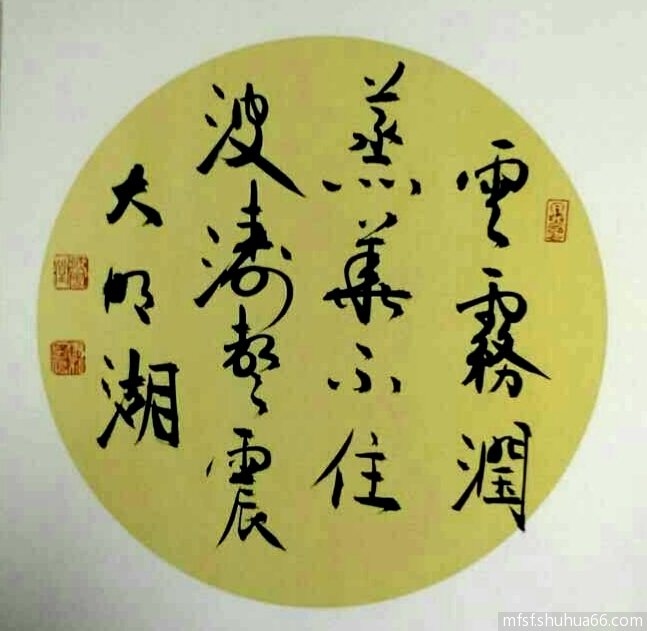 雲霧潤
蒸華不住
波濤聲震
大明湖
mfsf.shuhua66.com